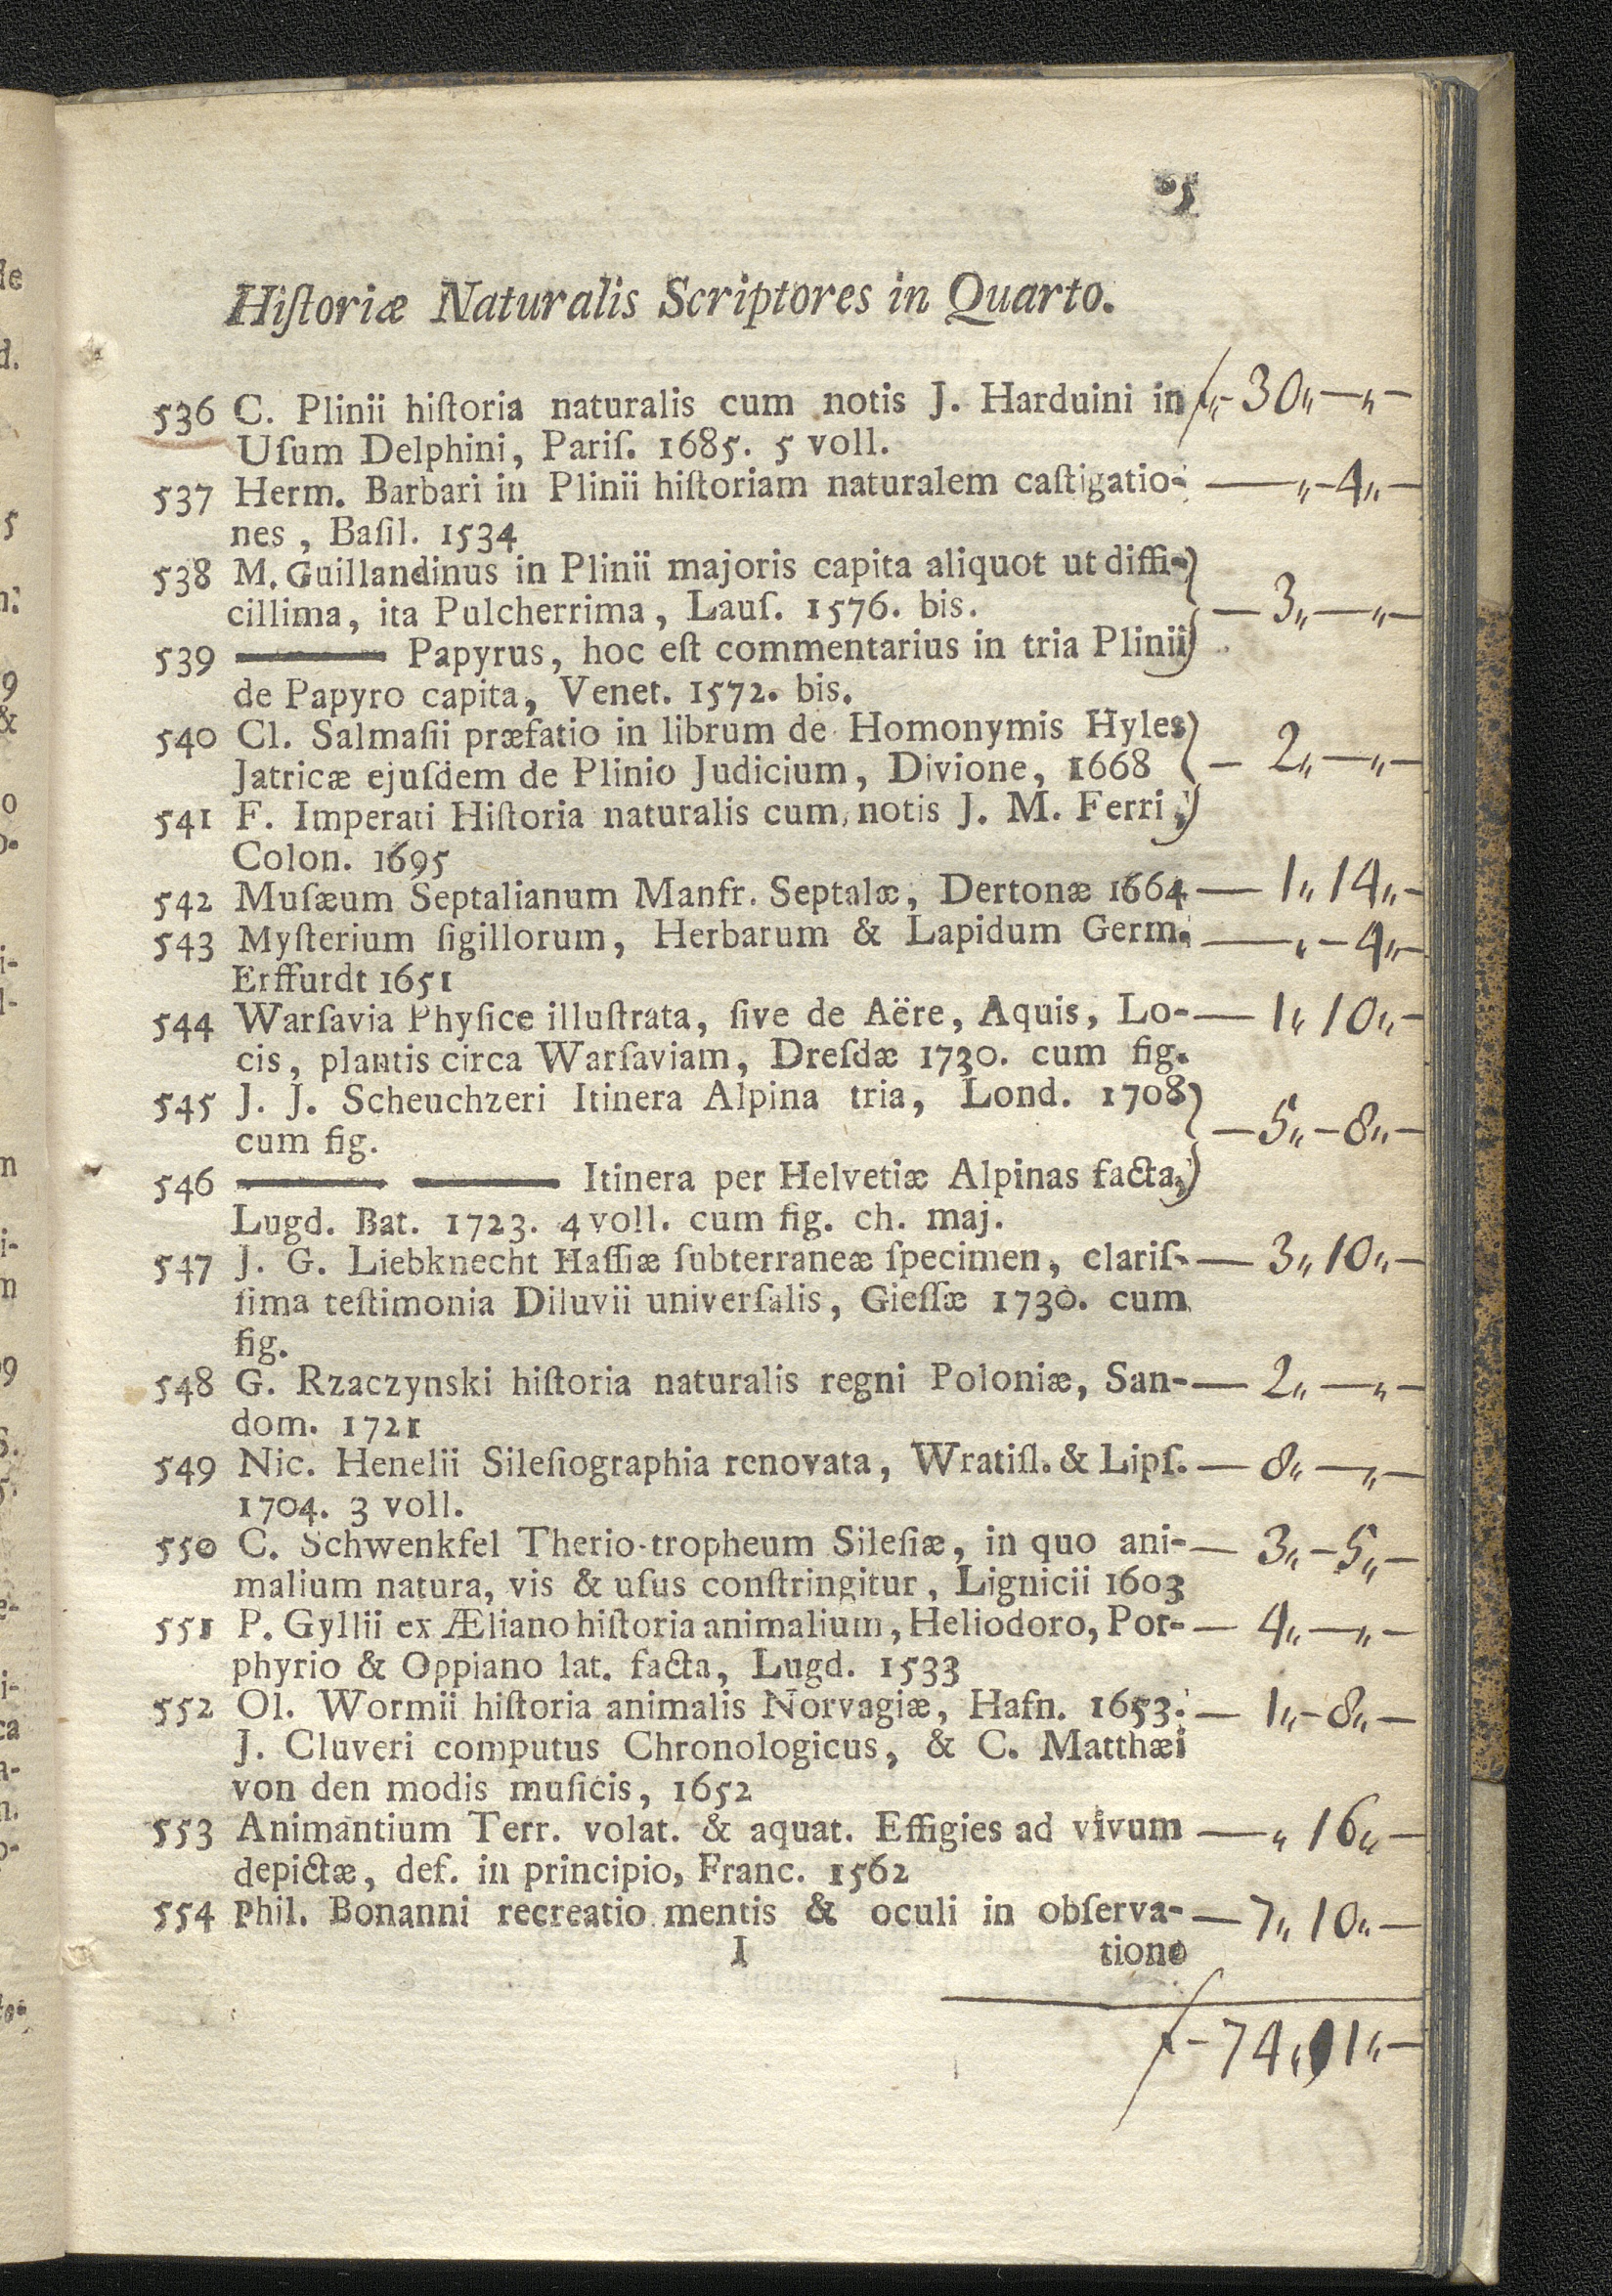 Hiſtoriæ Naturalis Scriptores in Quarto.
536 C. Plinii hiſtoria naturalis cum notis J. Harduini in ƒ„- 30„—„—
Uſum Delphini, Pariſ. 1685. 5 voll.
537 Herm. Barbari in Plinii hiſtoriam naturalem caſtigatio- —„-4„—
nes, Baſil. 1534
538 M. Guillandinus in Plinii majoris capita aliquot ut diffi-
cillima, ita Pulcherrima, Lauſ. 1576. bis. — 3„—„—
539 ——— Papyrus, hoc eſt commentarius in tria Plinii
de Papyro capita, Venet. 1572. bis.
540 Cl. Salmaſii præfatio in librum de Homonymis Hyles
Jatricæ ejuſdem de Plinio Judicium, Divione, 1668 — 2„—„—
541 F. Imperati Hiſtoria naturalis cum notis J. M. Ferri,
Colon. 1695
542 Muſæum Septalianum Manfr. Septalæ, Dertonæ 1664 — 1„14„-
543 Myſterium ſigillorum, Herbarum & Lapidum Germ. —„-4„-
Erffurdt 1651
544 Warſavia Phyſice illuſtrata, ſive de Aëre, Aquis, Lo- — 1„10„-
cis, plantis circa Warſaviam, Dreſdæ 1730. cum fig.
545 J. J. Scheuchzeri Itinera Alpina tria, Lond. 1708
cum fig. — 5„-8„-
546 ——— ——— Itinera per Helvetiæ Alpinas facta,
Lugd. Bat. 1723. 4 voll. cum fig. ch. maj.
547 J. G. Liebknecht Haſſiæ ſubterraneæ ſpecimen, clariſ- — 3„10„-
ſima teſtimonia Diluvii univerſalis, Gieſſæ 1730. cum
fig.
548 G. Rzaczynski hiſtoria naturalis regni Poloniæ, San- — 2„—„-
dom. 1721
549 Nic. Henelii Sileſiographia renovata, Wratiſl. & Lipſ. — 8„—„—
1704. 3 voll.
550 C. Schwenkfel Therio-tropheum Sileſiæ, in quo ani- — 3„-5„-
malium natura, vis & uſus conſtringitur, Lignicii 1603
551 P. Gyllii ex Æliano hiſtoria animalium, Heliodoro, Por- — 4„—„-
phyrio & Oppiano lat. facta, Lugd. 1533
552 Ol. Wormii hiſtoria animalis Norvagiæ, Hafn. 1653. — 1„-8„—
J. Cluveri computus Chronologicus, & C. Matthæi
von den modis muſicis, 1652
553 Animantium Terr. volat. & aquat. Effigies ad vivum —„16„—
depictæ, def. in principio, Franc. 1562
554 Phil. Bonanni recreatio mentis & oculi in obſerva- — 7„10„—
I tione
ƒ- 74„11„—